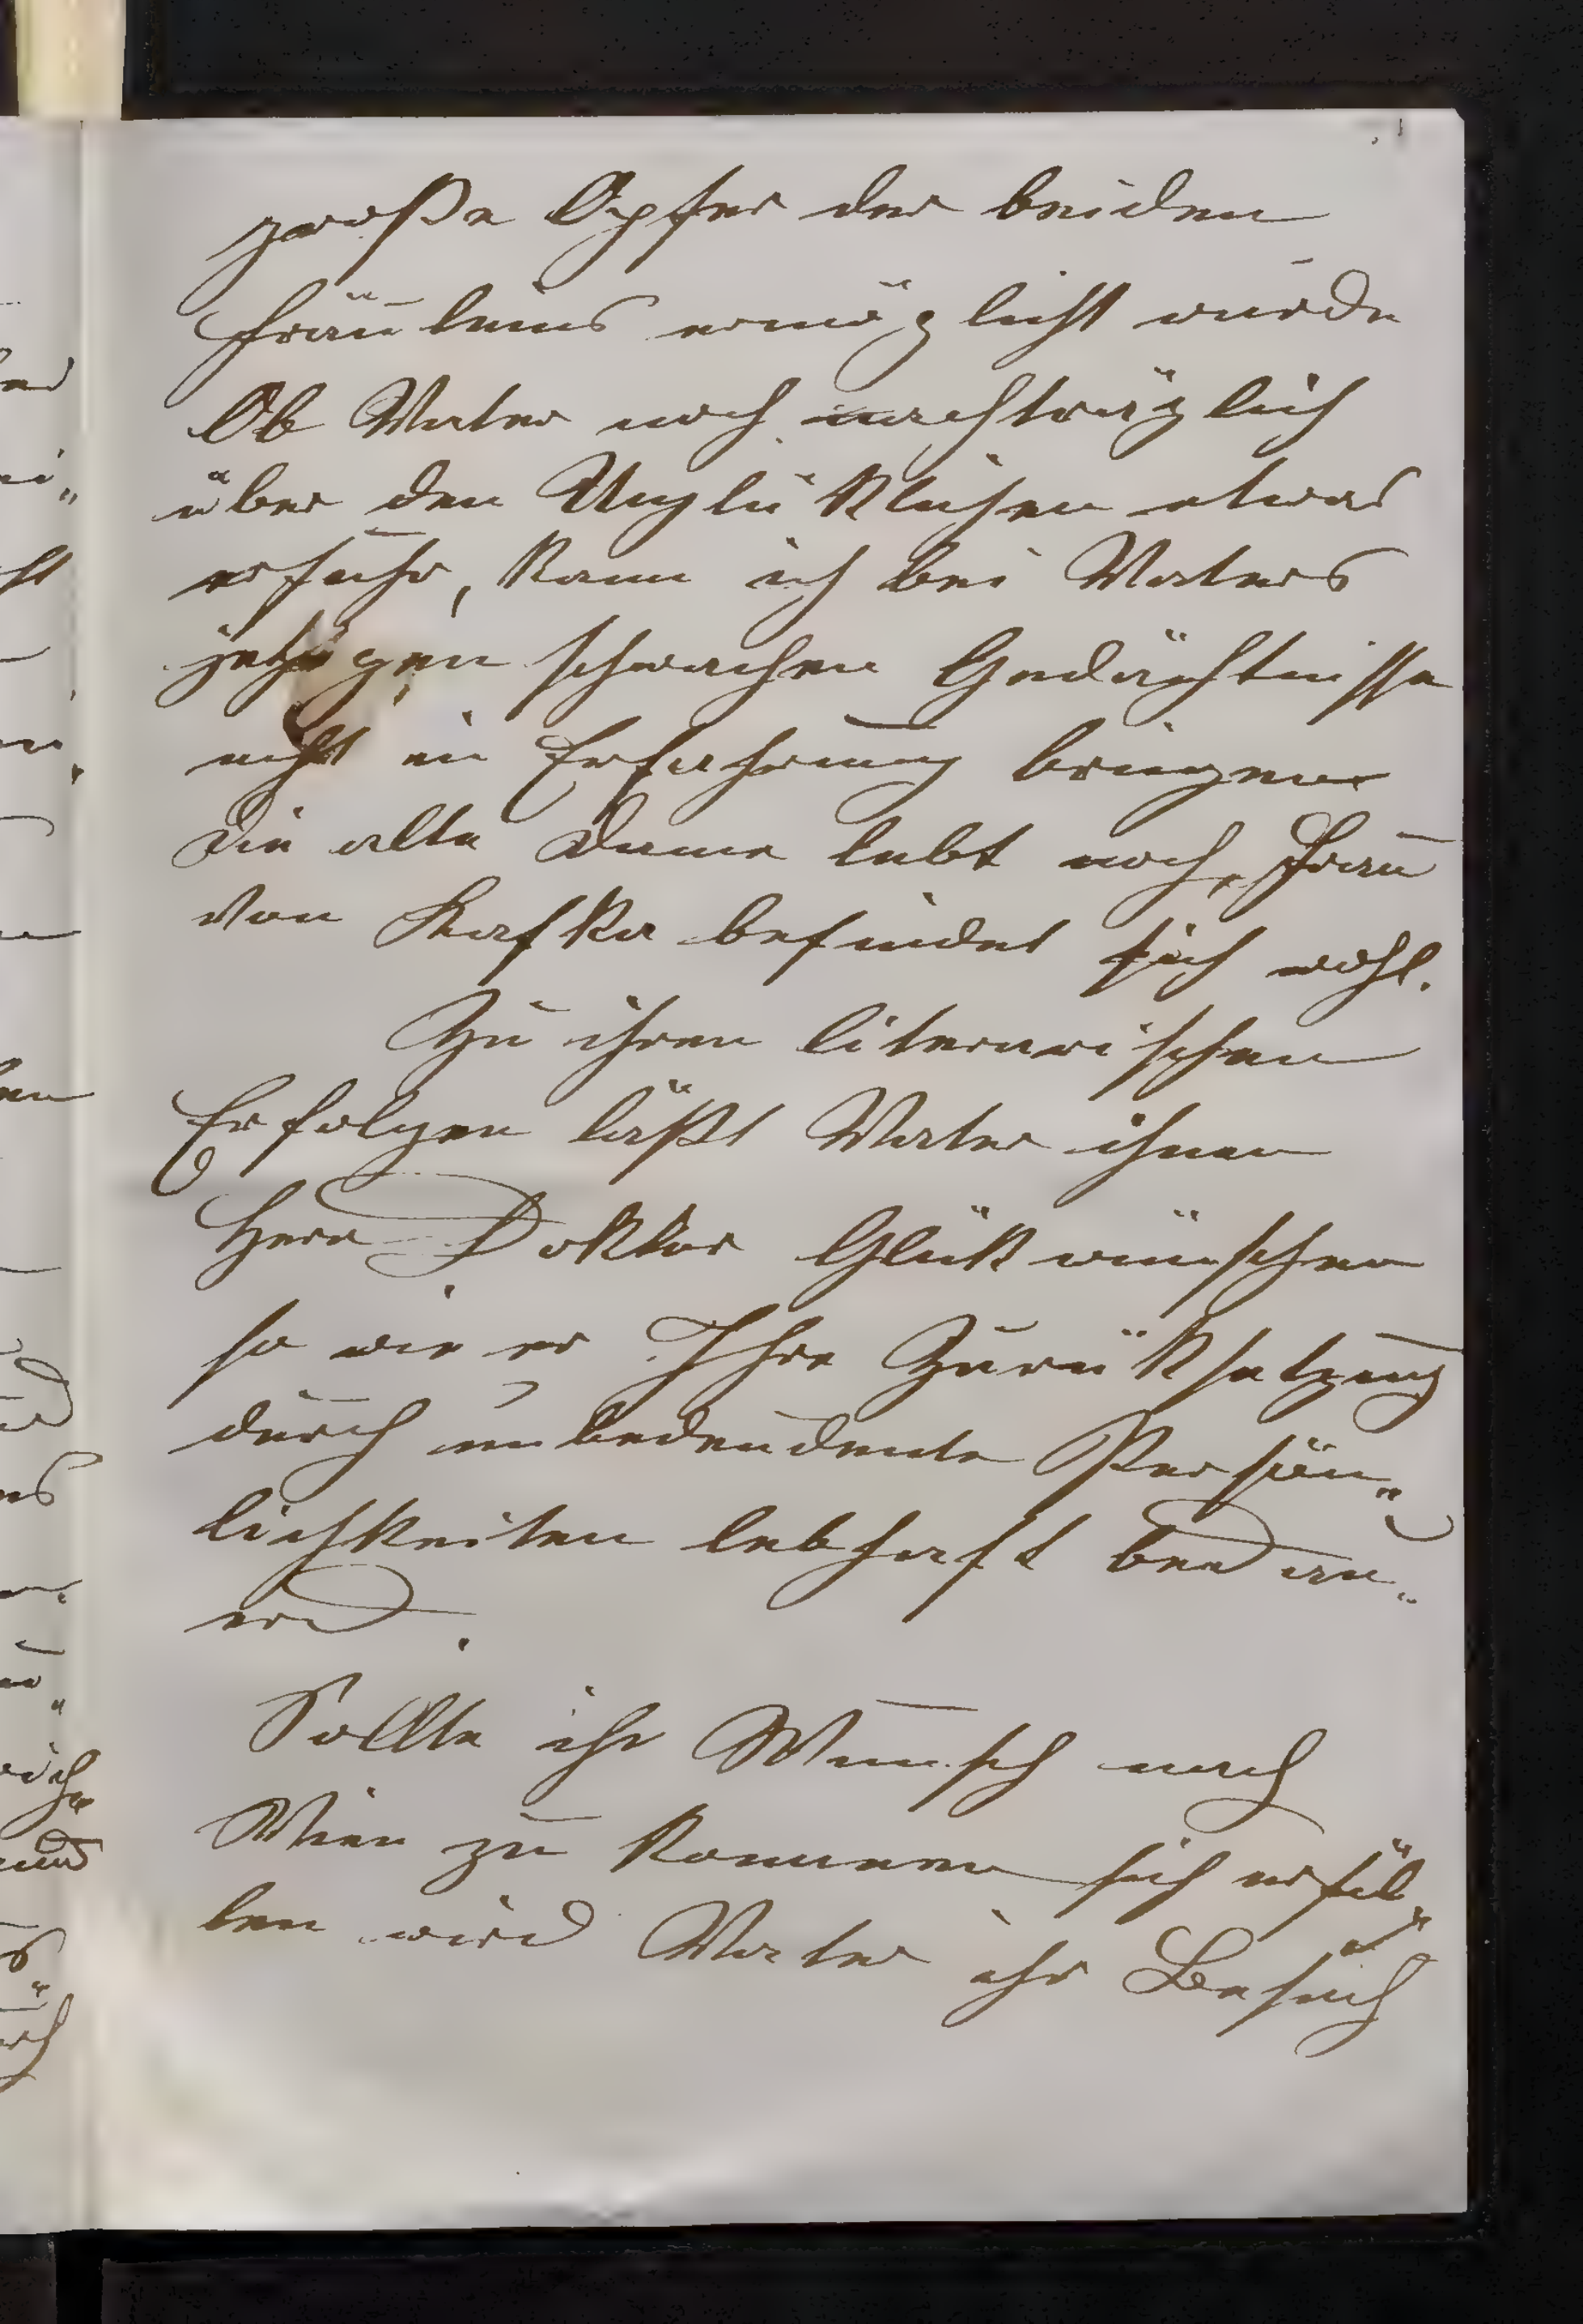 große Opfer der beiden
Fräuleins ermöglicht wurde
Ob Vater noch nachträglich
über den Unglüklichen etwas
erfuhr, kann ich bei Vaters
jetzigen schwachen Gedächtnisse
nicht in Erfahrung bringen
Die alte Dame lebt noch, Frau
von Kafka befindet sich wohl.
Zu ihren literarischen
Erfolgen läßt Vater ihnen
Herr Doktor Glük wünschen
so wie er Ihre Zurüksetzung
durch unbedeudente Persön„
lichkeiten lebhaft bedau„
erd.
Sollte ihr Wunsch nach
Wien zu kommen sich erfül„
len wird Vater ihr Besuch